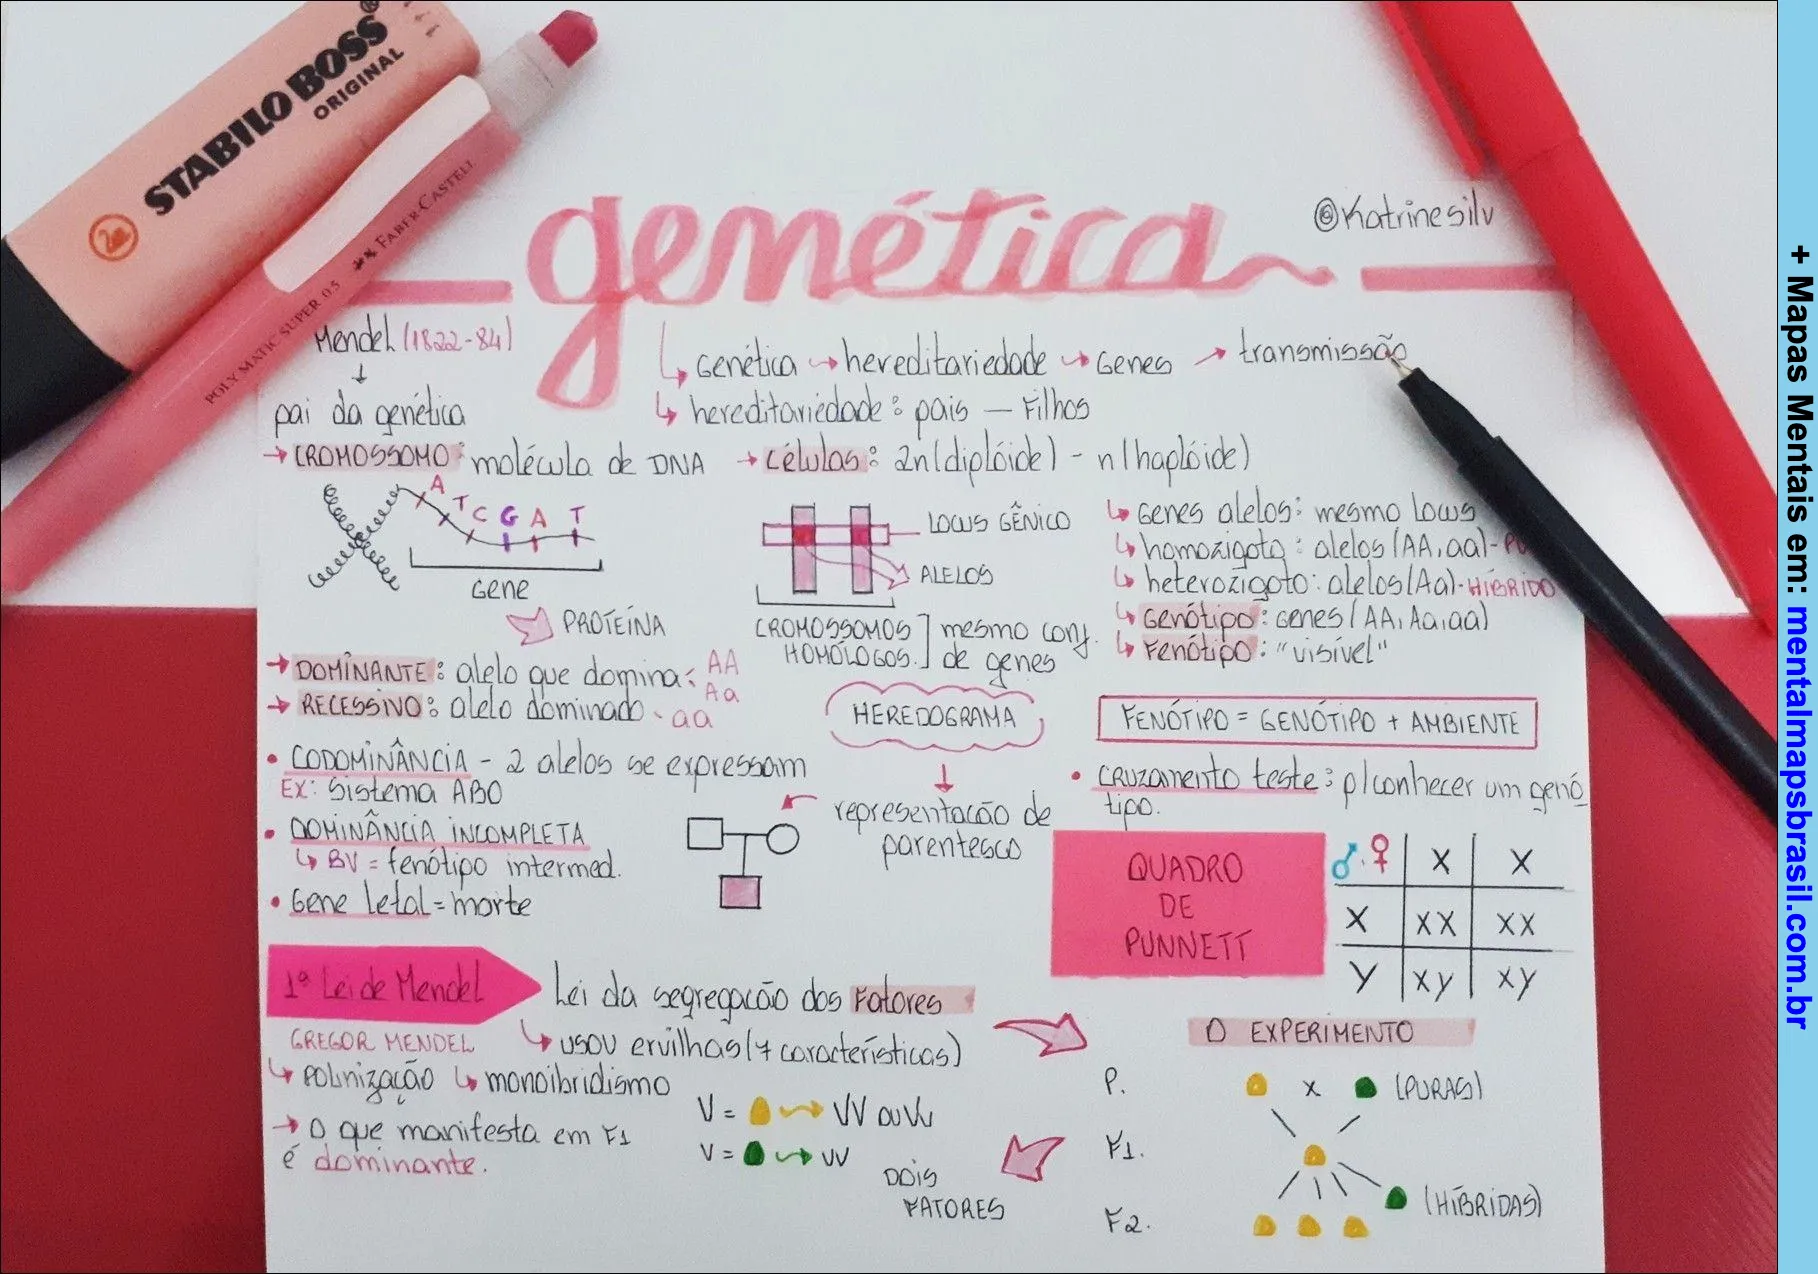 STABILO BOSS
ORIGINAL
POLYMATIC SUPER 0.5 FABER CASTELL
genética
@Katrinesilv
Mendel (1822-84)
pai da genética
genética → hereditariedade → genes → transmissão
hereditariedade: pais — Filhos
→ CROMOSSOMO: molécula de DNA
A T C G A T
gene
PROTEÍNA
→ células: 2n (diplóide) - n (haplóide)
LOCUS GÊNICO
ALELOS
CROMOSSOMOS HOMÓLOGOS.] mesmo conj. de genes
genes alelos: mesmo locus
homozigoto: alelos (AA, aa) -
heterozigoto: alelos (Aa) - HÍBRIDO
Genótipo: genes (AA, Aa, aa)
Fenótipo: "visível"
→ DOMINANTE: alelo que domina: AA Aa
→ RECESSIVO: alelo dominado - aa
• CODOMINÂNCIA - 2 alelos se expressam
EX: Sistema ABO
• DOMINÂNCIA INCOMPLETA
BV = fenótipo intermed.
• Gene letal = morte
HEREDOGRAMA
representação de parentesco
FENÓTIPO = GENÓTIPO + AMBIENTE
• cruzamento teste: p/ conhecer um genó
tipo.
QUADRO
DE
PUNNETT
♂.♀ X X
X XX XX
Y Xy Xy
1ª Lei de Mendel
Lei da segregação dos Fatores
GREGOR MENDEL
usou ervilhas (7 características)
polinização
monoibridismo
→ O que manifesta em F1
é dominante.
V = → VV ou Vv
v = → vv
DOIS
FATORES
O EXPERIMENTO
P. x (PURAS)
F1.
F2. (HÍBRIDAS)
+ Mapas Mentais em: mentalmapsbrasil.com.br